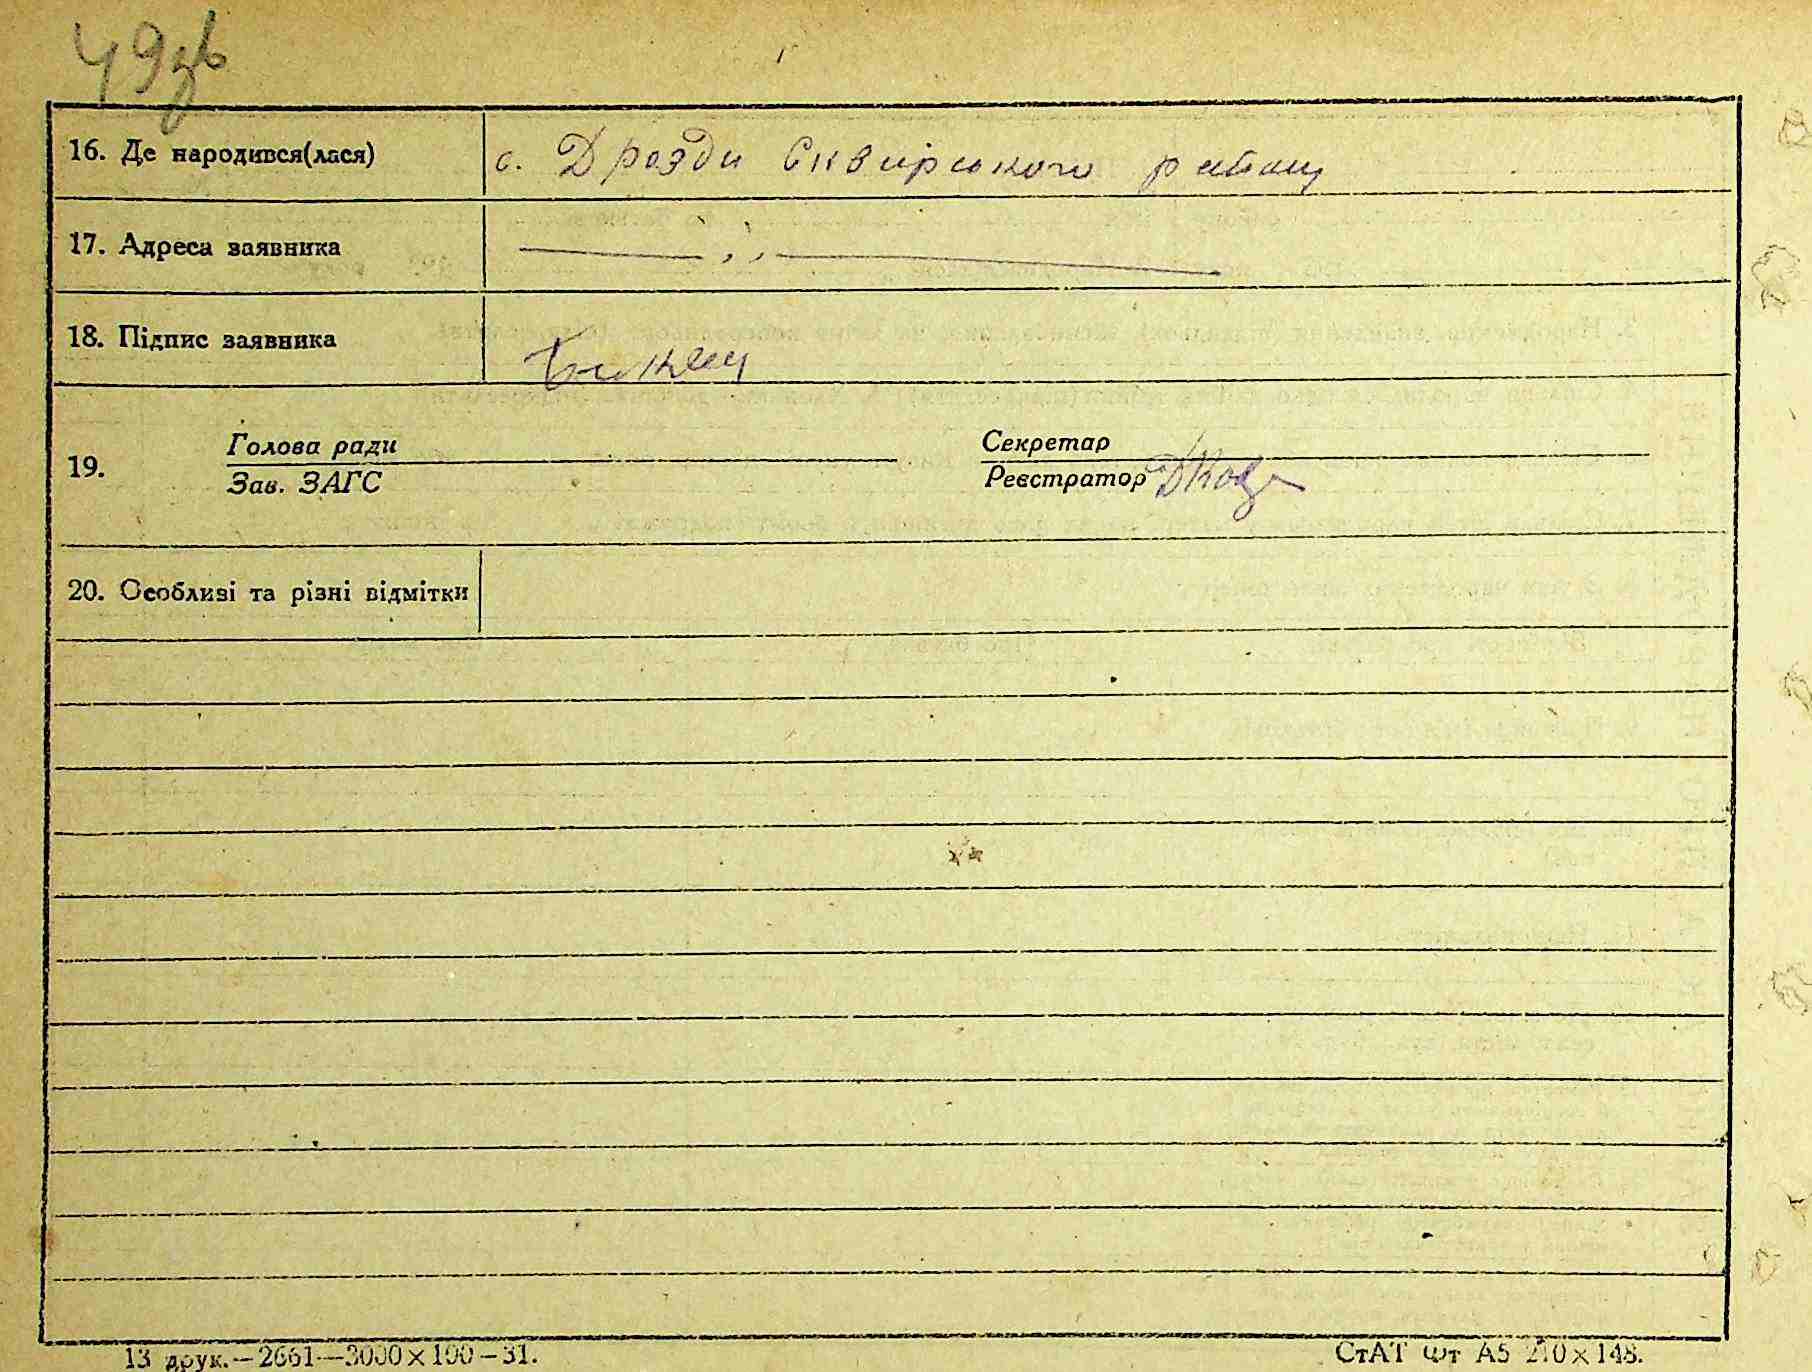 49зв
16. Де народився(лася) с. Дрозди Сквирського району
17. Адреса заявника — ,, —
18. Підпис заявника
19. Голова ради Секретар
Зав. ЗАГС Реєстратор
20. Особливі та різні відмітки
13 друк.—2661—3000×100—31. СтАТ Фт А5 210×148.